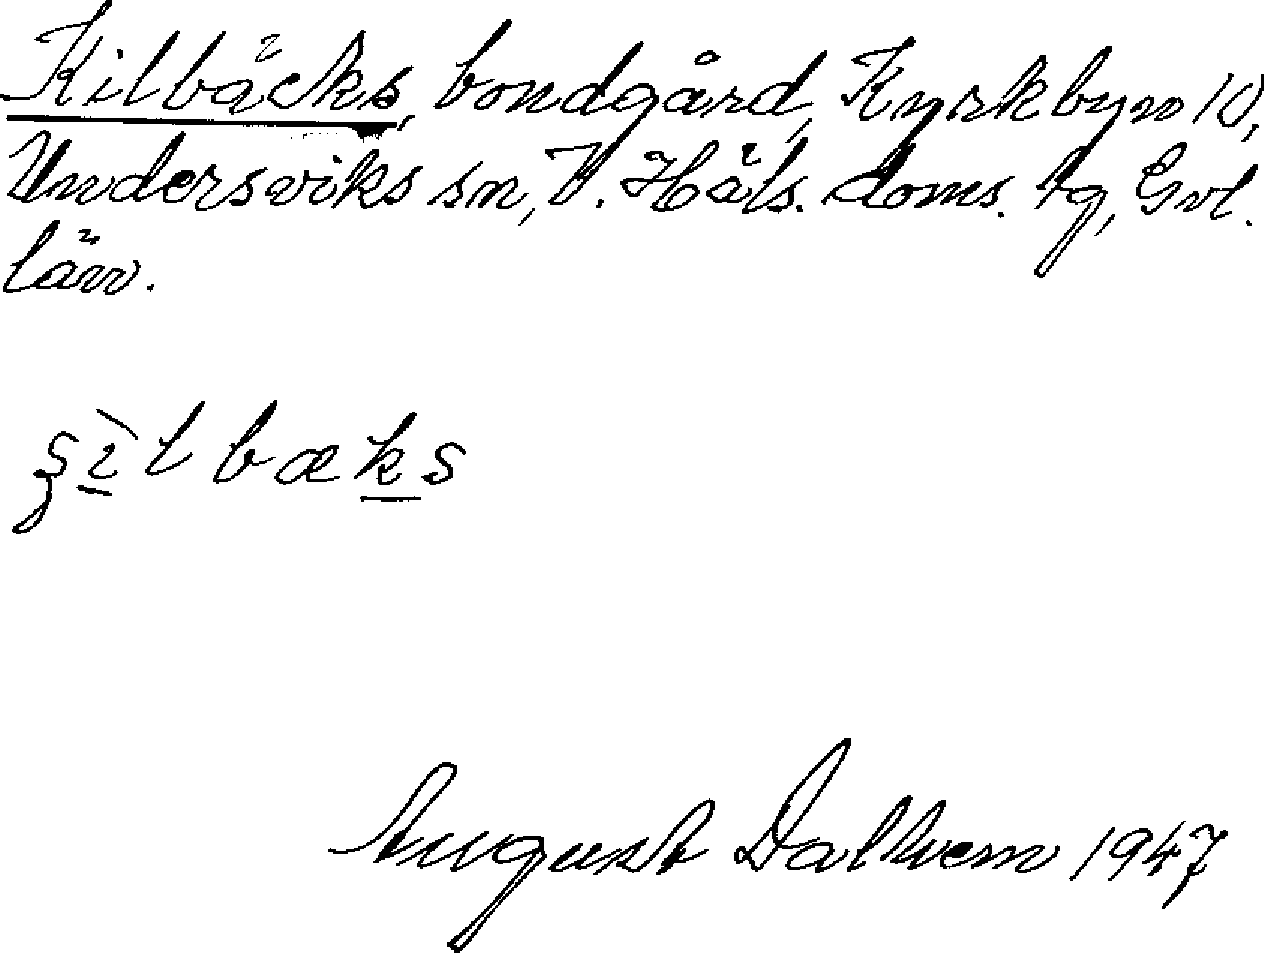 Kilbäcks, bondgård, Kyrkbyn 10,
Undersviks sn, V. Häls. doms. tg, Gvl.
län.
August 1947